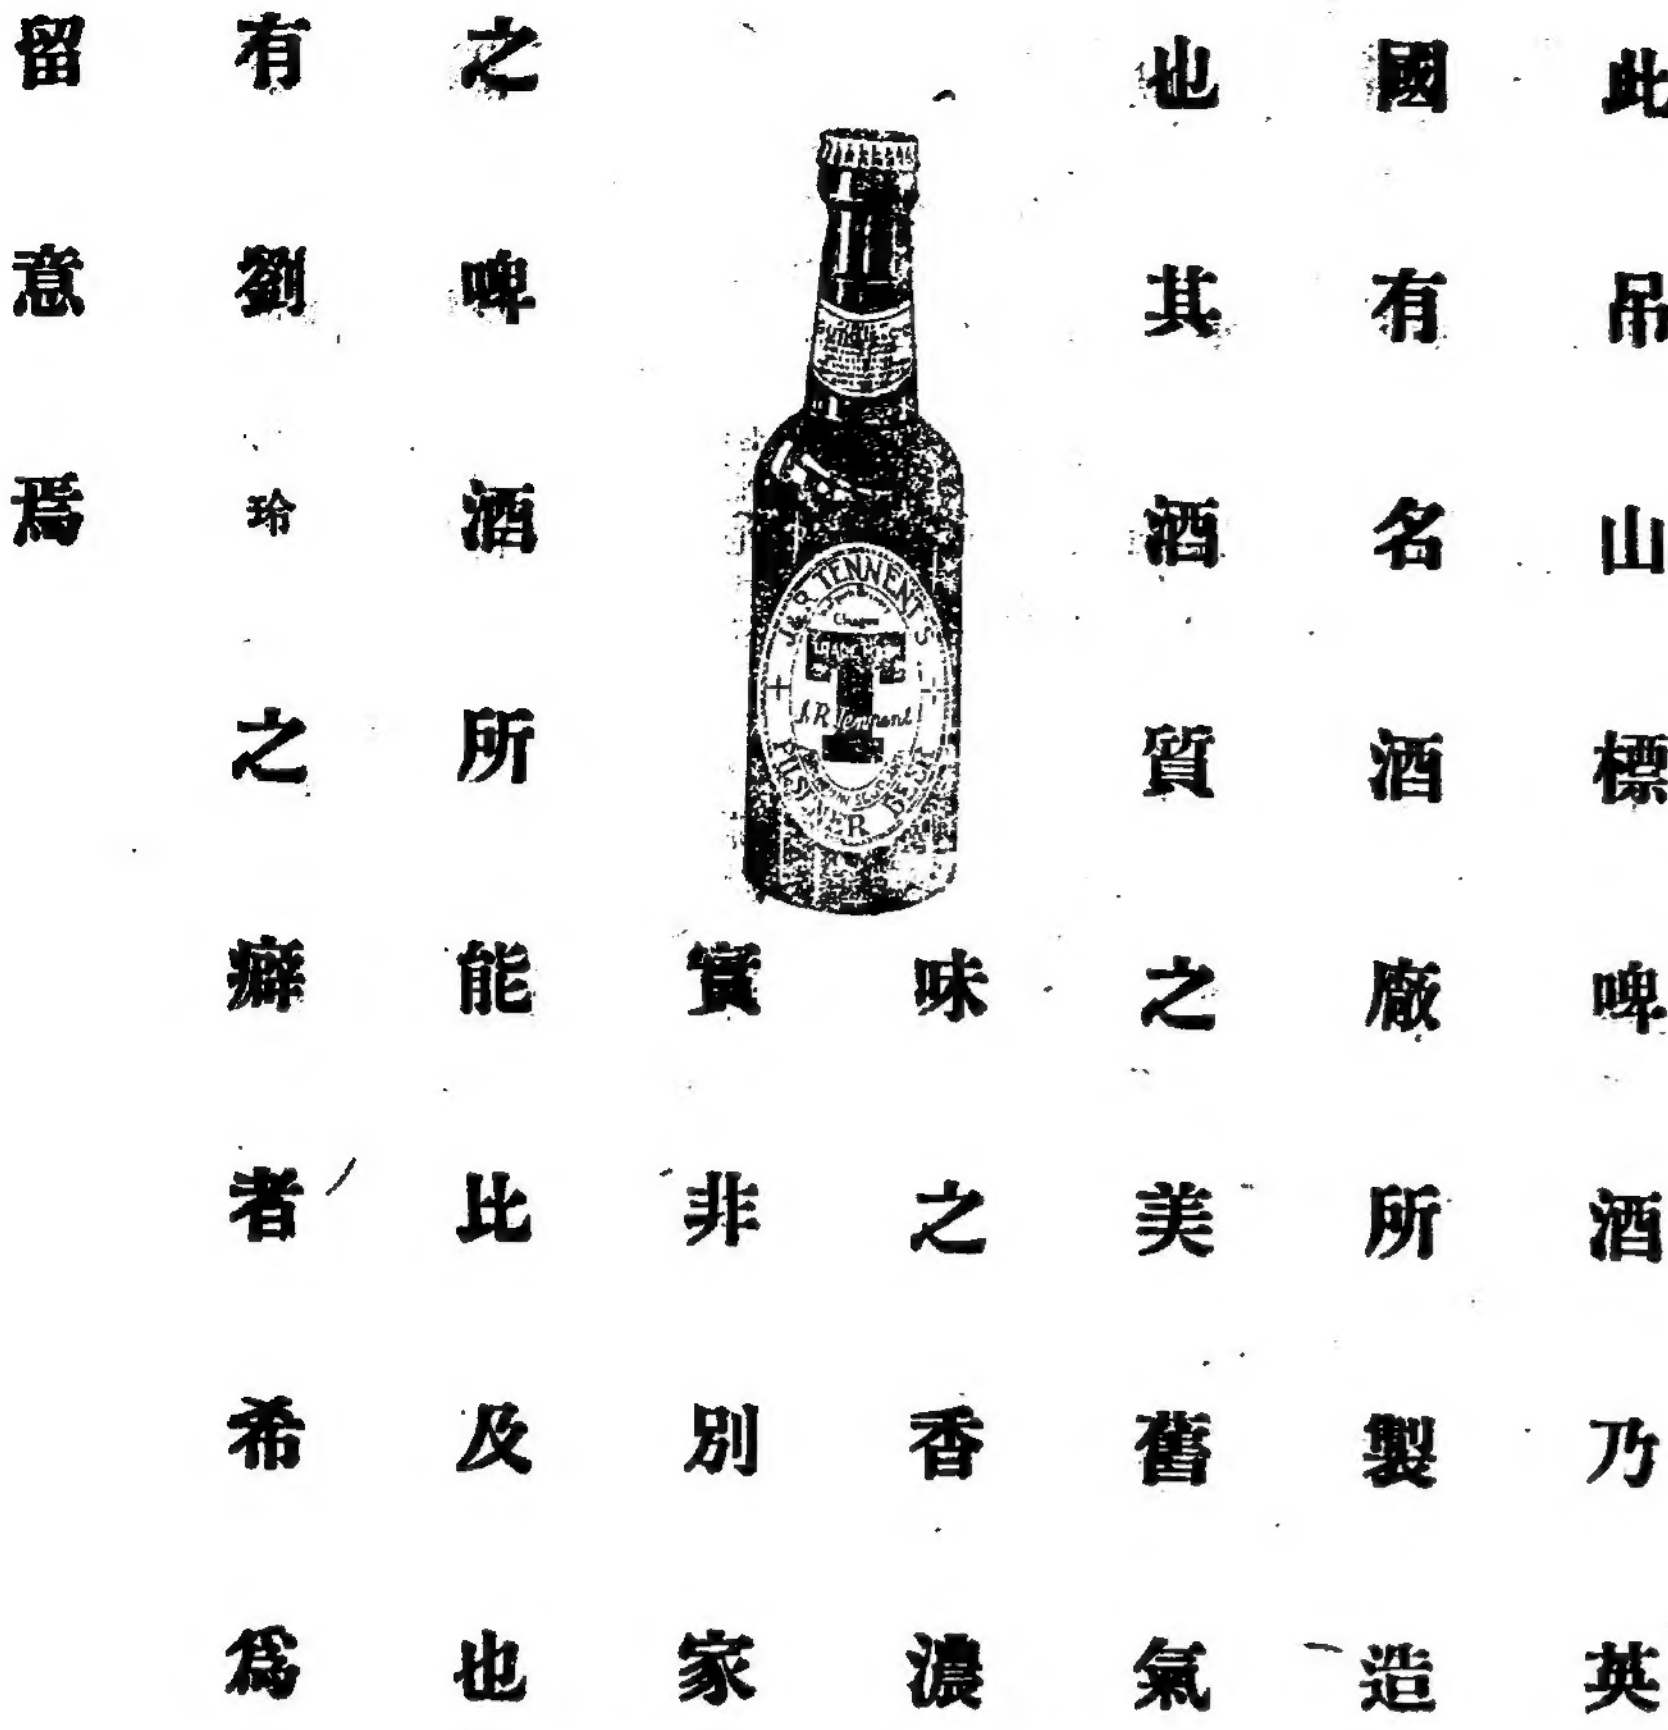 此吊山標啤酒乃英
國有名酒廠所製造
也其酒質之美舊氣
味之香濃
實非別家
之啤酒所能比及也
有劉玲之癖者希為
留意焉
J. & R. TENNENT'S
TRADE MARK
T
J. & R. Tennent
PILSNER BEER